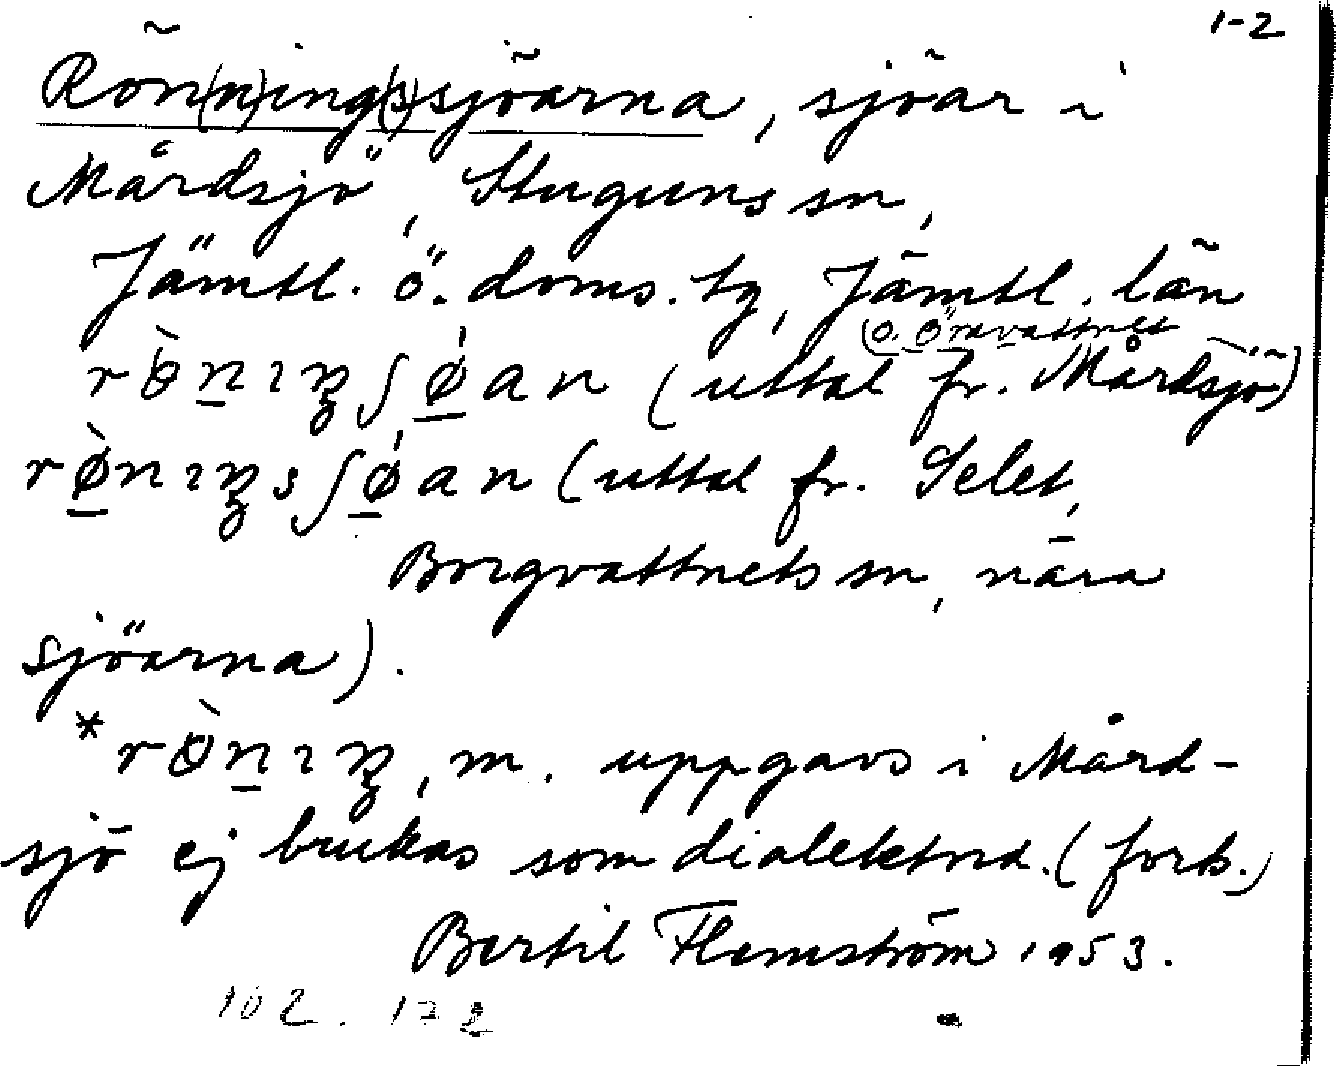 1-2
Rön(n)ing(s)sjöarna, sjöar i
Mårdsjö, Stuguns sn,
Jämtl. ö. doms. tg, Jämtl. län
(o. Öravattnet
rò̱nıŋʃǿan (uttal fr. Mårdsjö)
rø̀nıŋsʃǿan (uttal fr. Selet,
Borgvattnets sn, nära
sjöarna).
*rònıŋ, m. uppgavs i Mård-
sjö ej brukas som dialektord. (forts.)
Bertil Flemström 1953.
102. 172